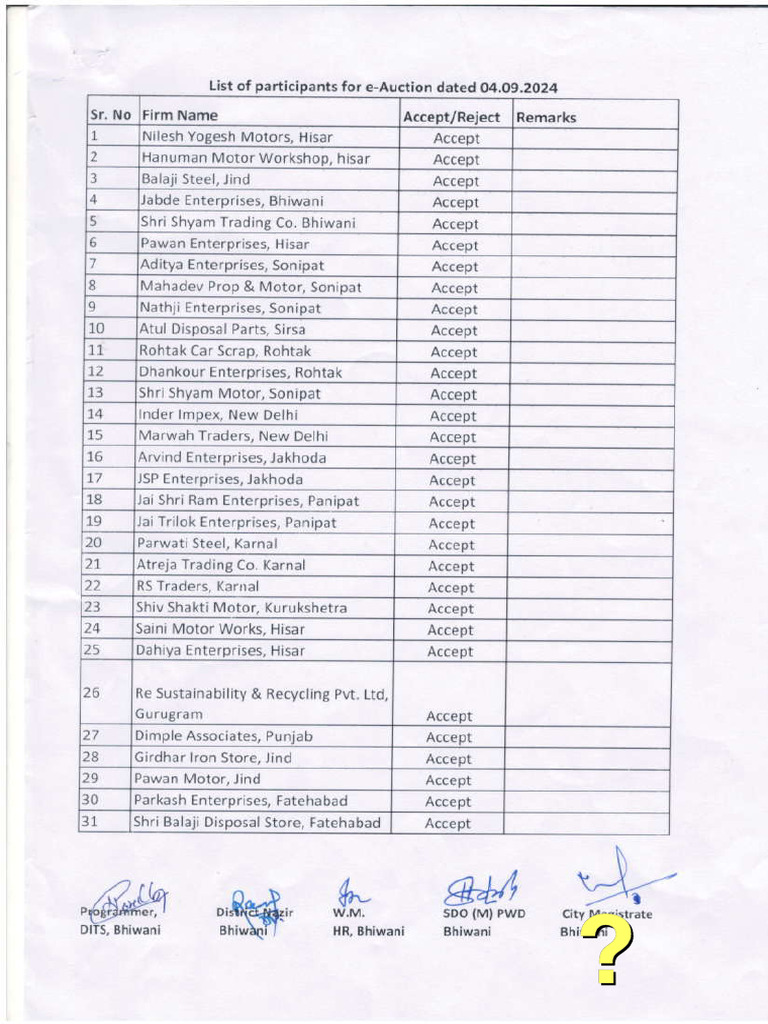 List of participants for e-Auction dated 04.09.2024
Sr. No Firm Name Accept/Reject Remarks
1 Nilesh Yogesh Motors, Hisar Accept
2 Hanuman Motor Workshop, hisar Accept
3 Balaji Steel, Jind Accept
4 Jabde Enterprises, Bhiwani Accept
5 Shri Shyam Trading Co. Bhiwani Accept
6 Pawan Enterprises, Hisar Accept
7 Aditya Enterprises, Sonipat Accept
8 Mahadev Prop & Motor, Sonipat Accept
9 Nathji Enterprises, Sonipat Accept
10 Atul Disposal Parts, Sirsa Accept
11 Rohtak Car Scrap, Rohtak Accept
12 Dhankour Enterprises, Rohtak Accept
13 Shri Shyam Motor, Sonipat Accept
14 Inder Impex, New Delhi Accept
15 Marwah Traders, New Delhi Accept
16 Arvind Enterprises, Jakhoda Accept
17 JSP Enterprises, Jakhoda Accept
18 Jai Shri Ram Enterprises, Panipat Accept
19 Jai Trilok Enterprises, Panipat Accept
20 Parwati Steel, Karnal Accept
21 Atreja Trading Co. Karnal Accept
22 RS Traders, Karnal Accept
23 Shiv Shakti Motor, Kurukshetra Accept
24 Saini Motor Works, Hisar Accept
25 Dahiya Enterprises, Hisar Accept
26 Re Sustainability & Recycling Pvt. Ltd,
Gurugram Accept
27 Dimple Associates, Punjab Accept
28 Girdhar Iron Store, Jind Accept
29 Pawan Motor, Jind Accept
30 Parkash Enterprises, Fatehabad Accept
31 Shri Balaji Disposal Store, Fatehabad Accept
Programmer, District Nazir W.M. SDO (M) PWD City Magistrate
DITS, Bhiwani Bhiwani HR, Bhiwani Bhiwani Bhiwani
?